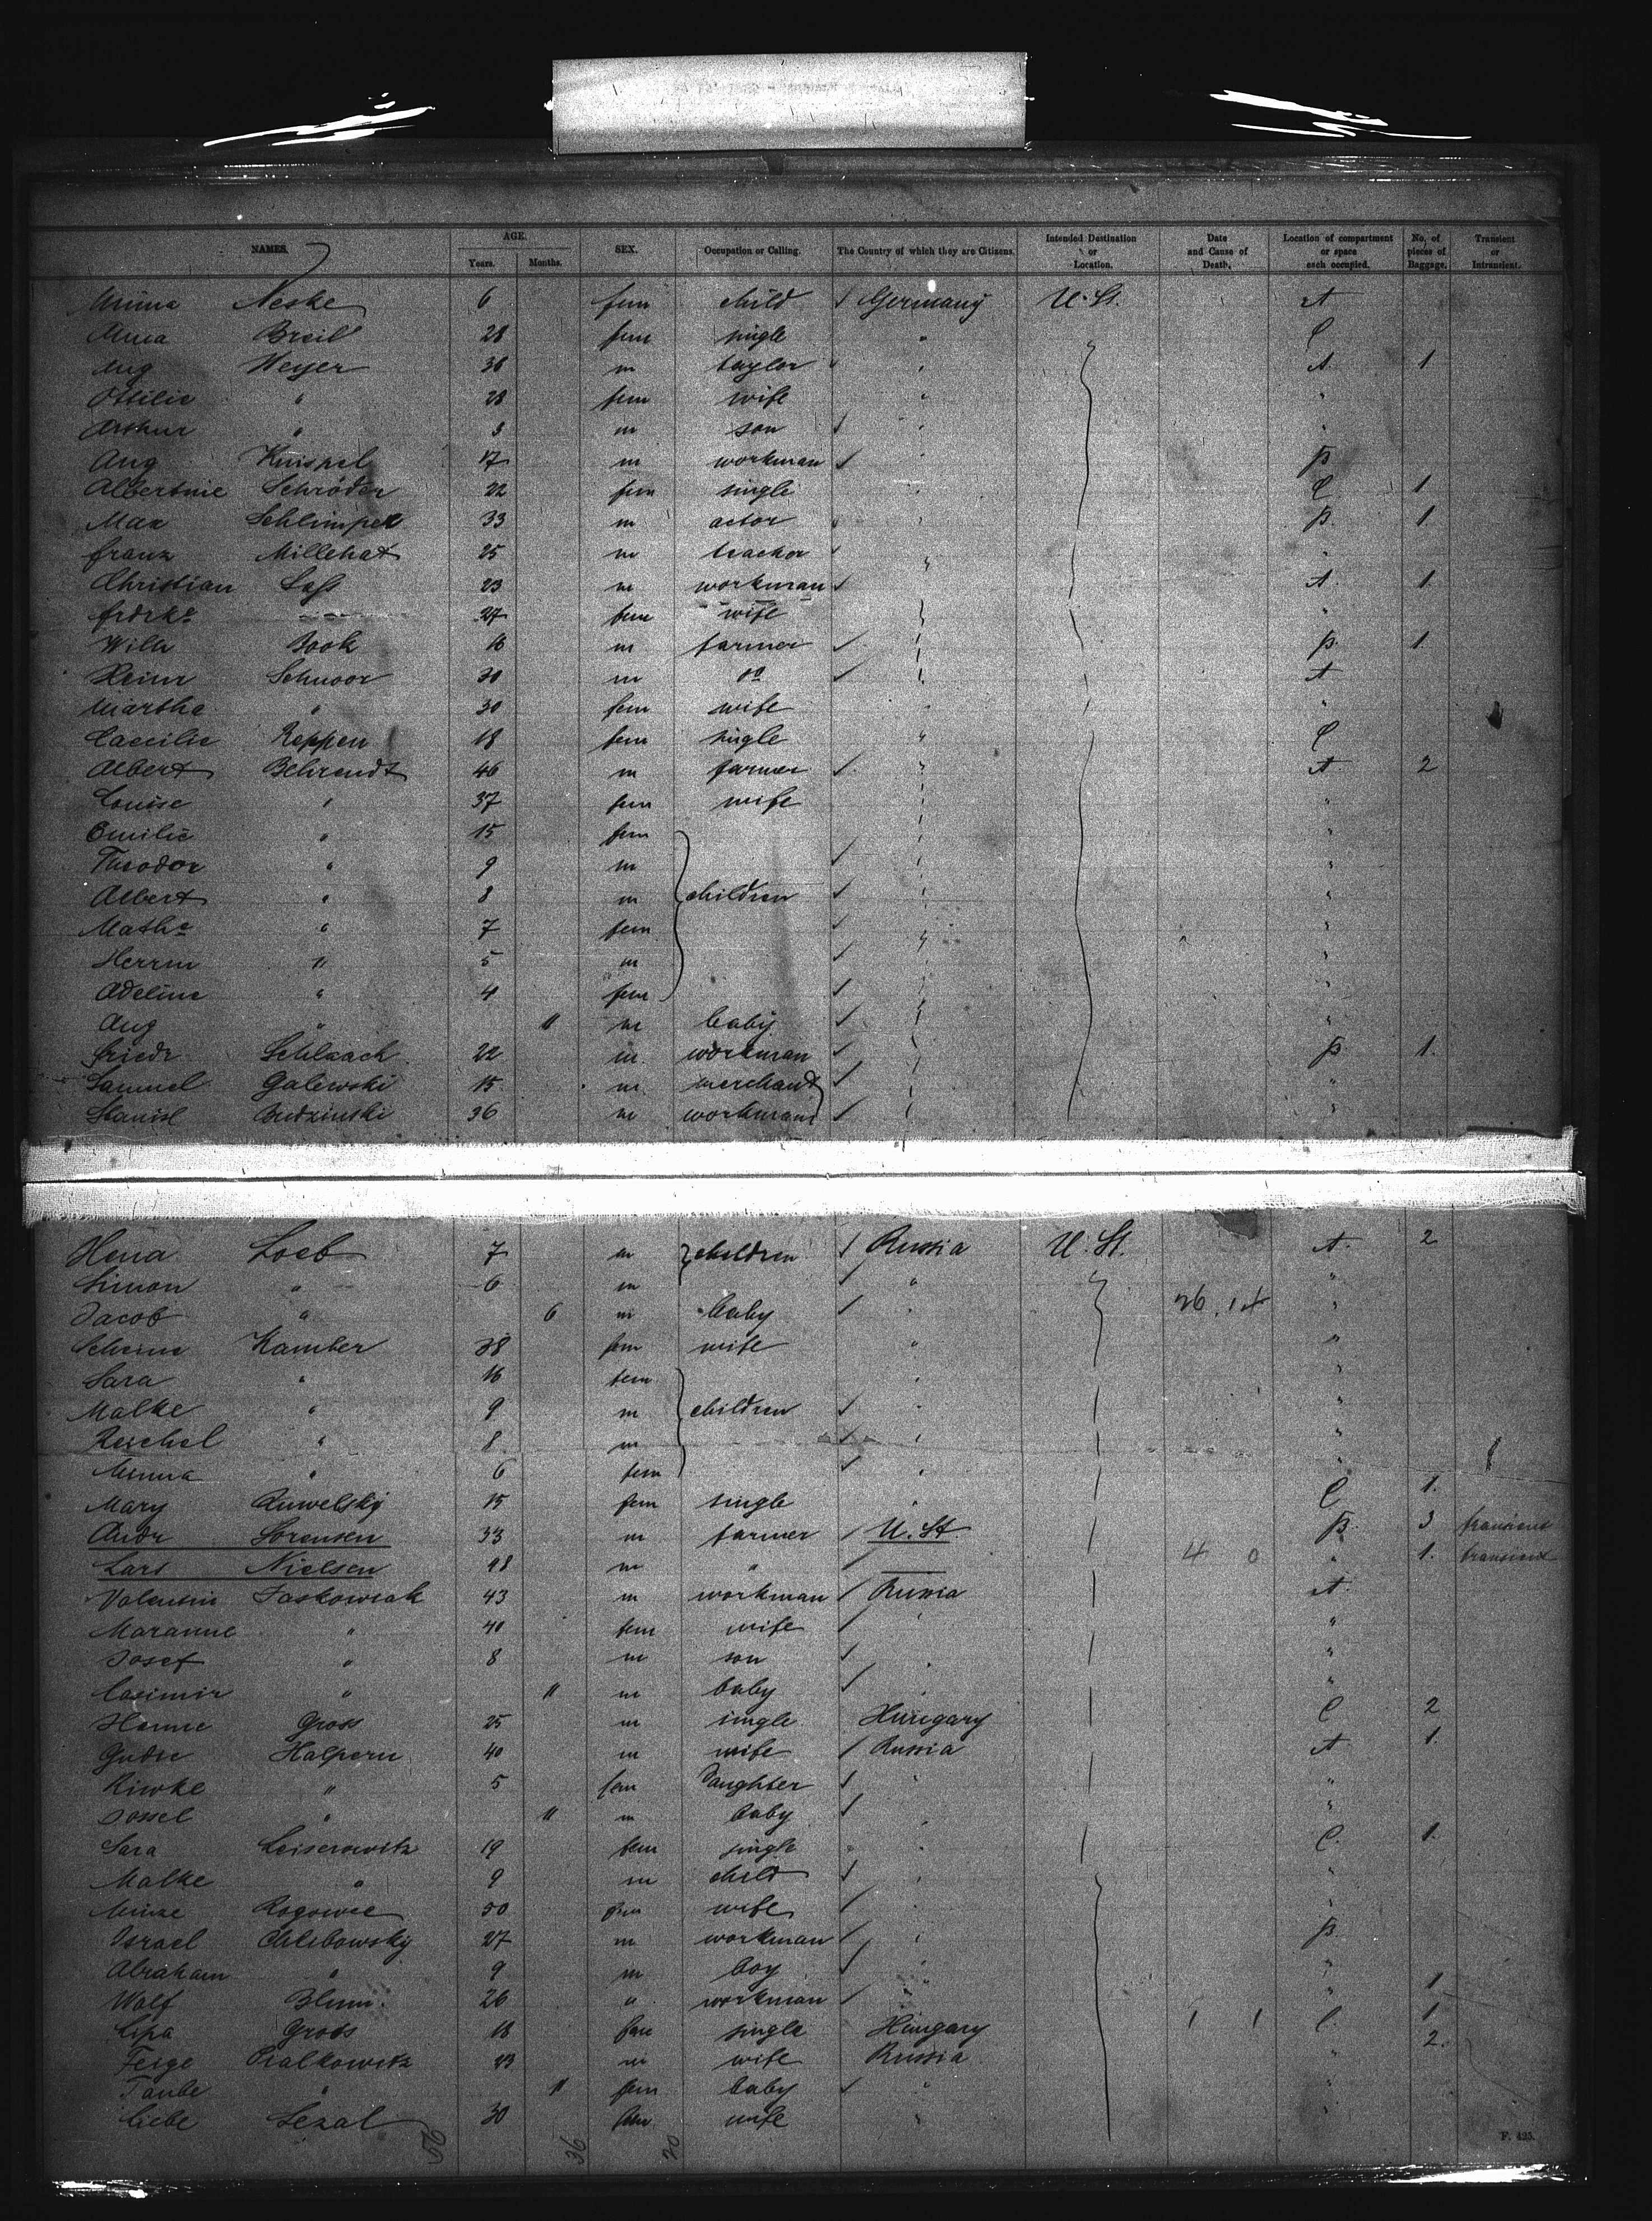 NAMES. AGE. SEX. Occupation or Calling. The Country of which they are Citizens. Intended Destination or Location. Date and Cause of Death. Location of compartment or space each occupied. No. of pieces of Baggage. Transient or Intransient.
Years. Months.
Minna Neske 6 fem child Germany U. St. A
Anna Breil 28 fem single " C
Aug Weyer 36 m taylor " A 1.
Ottilie " 28 fem wife " "
Arthur " 3 m son " "
Aug Knispel 17 m workman " B
Albertine Schröder 22 fem single " C 1.
Max Schlimper 33 m actor " B. 1.
Franz Millehat 25 m teacher " "
Christian Lass 23 m workman A. 1.
27 fem wife "
Willi Book 16 m farmer B. 1.
Heinr Schnoor 30 m do A
Martha " 30 fem wife " "
Caecilie Reppen 18 fem single " C
Albert Behrendt 46 m farmer " A. 2
Louise " 37 fem wife "
Emilie " 15 fem "
Theodor " 9 m "
Albert " 8 m children "
Mathe " 7 fem "
Herrm " 5 m "
Adeline " 4 fem
Aug " 11 m baby "
Friedr 22 m workman B. 1.
Samuel Galewski 15 m merchant "
Stanisl Budzinski 36 m workman "
Loeb 7 m children Russia U. St. A. 2
Simon " 6 m " "
Jacob " 6 m baby " 26.14 "
Kamber 38 fem wife " "
Sara " 16 fem "
Malke " 9 m children " "
Reschel " 8 m "
Minna " 6 fem "
Mary 15 fem single " C 1.
Andr Sorensen 33 m farmer U. St B. 3 transient
Lars Nielsen 48 m " 4 0 " 1. transient
Valentin Jaskowiak 43 m workman Russia A.
Maranne " 40 fem wife "
Josef " 8 m son "
Casimir " 11 m baby "
Hanne Gross 25 m single Hungary C 2
Halpern 40 m wife Russia A 1.
Riwke " 5 fem Daughter "
Jossel " 11 m baby "
Sara Leiserowitz 19 fem single C. 1.
Malke " 9 m child "
Rogowie 50 fem wife "
Israel Chlebowsky 27 m workman B
Abraham " 9 m boy "
Wolf Blum. 26 " workman " 1
Lipa Gross 18 fem single Hungary 1 1 C. 1
Feige Pialkowitz 23 m wife Russia " 2.
Taube " 11 fem baby " "
Liebe Lezal 30 fem wife " "
56 36 20
F. 425.